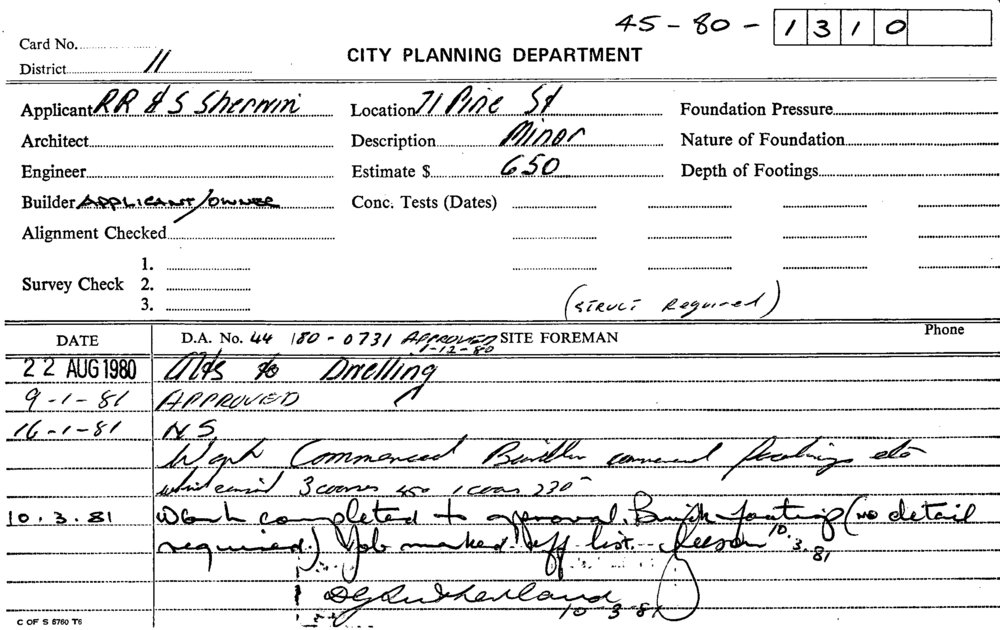 45-80-1310
Card No.
District 11
CITY PLANNING DEPARTMENT
Applicant RR & S Sherwin Location 71 Pine St Foundation Pressure
Architect Description Minor Nature of Foundation
Engineer Estimate $ 650 Depth of Footings
Builder APPLICANT/OWNER Conc. Tests (Dates)
Alignment Checked
Survey Check 1.
2.
3.
(STRUCT Required)
DATE D.A. No. 44 180-0731 APPROVED 1-12-80 SITE FOREMAN Phone
22 AUG 1980 Alts to Dwelling
9-1-81 APPROVED
16-1-81 NS
Work Commenced footings etc
3 courses 450 1 course 230
10.3.81 Work completed to approval. Brick footing (no detail
required.) Job marked off list. 10.3.81
DG Sutherland
10-3-81
C OF S 5760 T6